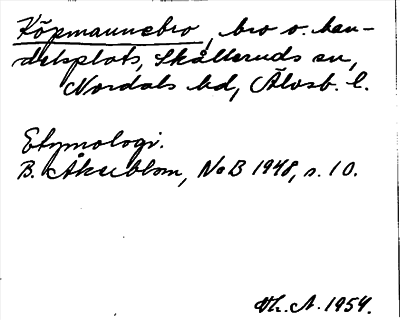 Köpmannebro, bro o. han-
delsplats, Skålleruds sn,
Nordals hd, Älvsb. l.
Etymologi.
B. Åkerblom, NoB 1948, s. 10.
Th. A. 1954.